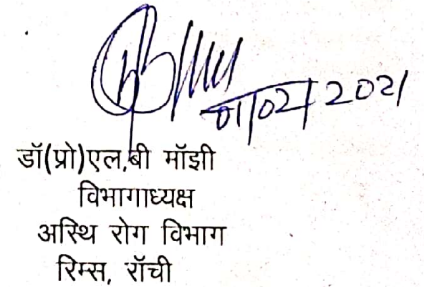 01/02/2021
डॉ(प्रो)एल,बी मॉझी
विभागाध्यक्ष
अस्थि रोग विभाग
रिम्स, रॉची